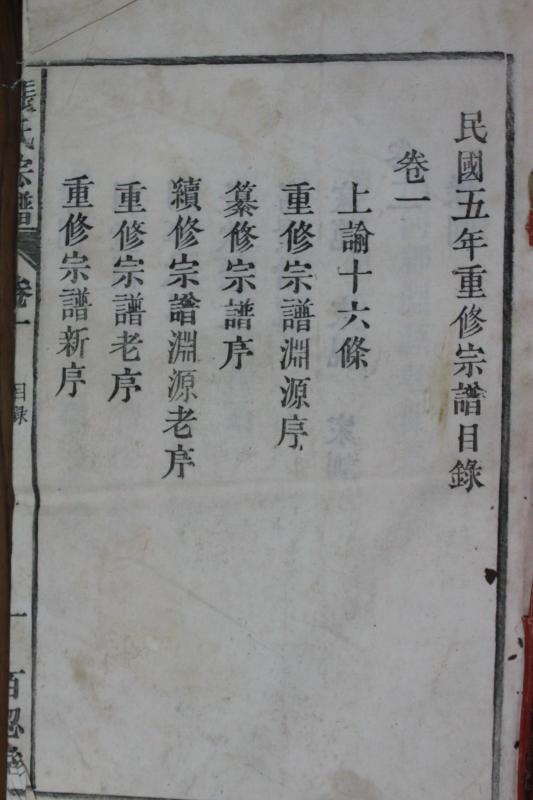 民國五年重修宗譜目錄
卷一
上諭十六條
重修宗譜淵源序
纂修宗譜序
續修宗譜淵源老序
重修宗譜老序
重修宗譜新序
張氏宗譜
卷一
目錄
一
百忍堂